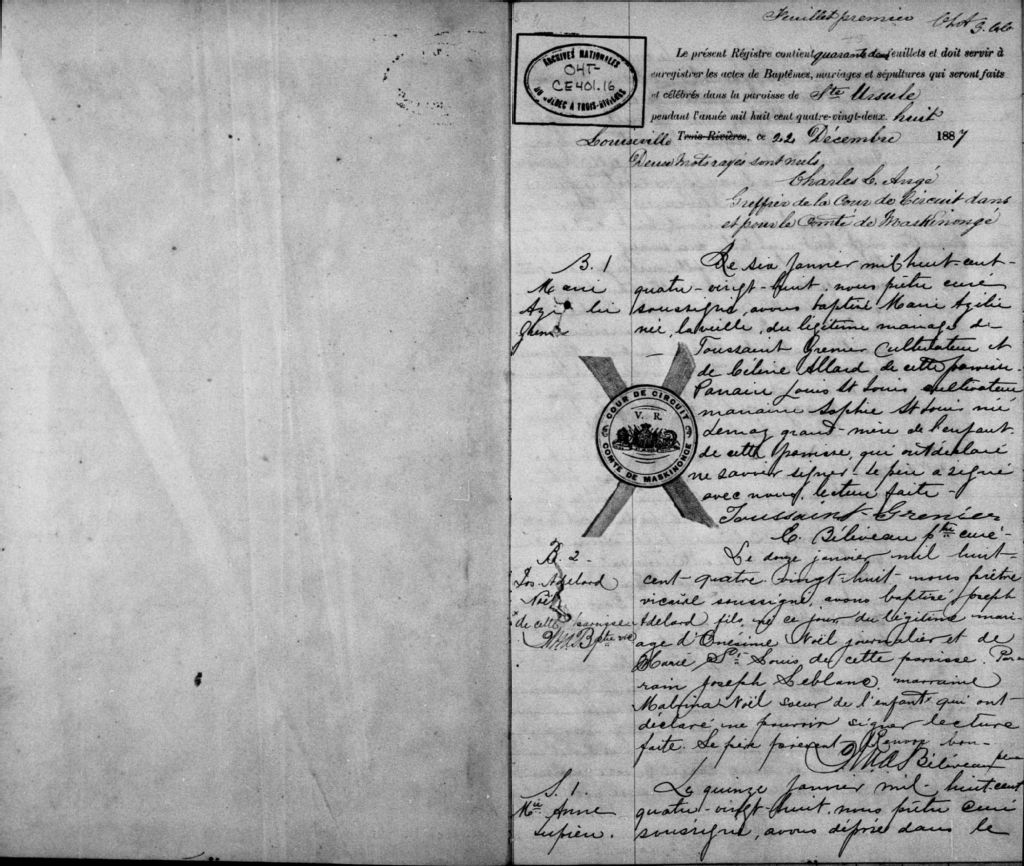 Feuillet premier
ARCHIVES NATIONALES
04T-
CE401.16
DU QUÉBEC À TROIS-RIVIÈRES
Le présent Régistre contient quarante deux feuillets et doit servir à
enregistrer les actes de Baptêmes, mariages et sépultures qui seront faits
et célébrés dans la paroisse de Ste Ursule
pendant l'année mil huit cent quatre-vingt-deux. huit
Louiseville Trois-Rivières, ce 22 Décembre 1887
Deux mots rayés sont nuls
Charles L. Angé
Greffier de la Cour de Circuit dans
et pour le Comté de Maskinongé
B. 1
Marie
Azilie
Grenier
Le six Janvier mil huit-cent-
quatre-vingt-huit, nous prêtre curé
soussigné, avons baptisé Marie Azilie
née, la veille, du légitime mariage de
Toussaint Grenier cultivateur et
de Céline Allard de cette paroisse.
Parrain Louis St Louis cultivateur
marraine Sophie St Louis née
Lemay grand-mère de l'enfant
de cette paroisse, qui ont déclaré
ne savoir signer - le père a signé
avec nous. lecture faite -
COUR DE CIRCUIT
V. R.
COMTÉ DE MASKINONGÉ
Toussaint Grenier
E. Béliveau ptre curé-
B. 2-
Jos-Adélard
Noël
de cette paroisse
ptre vic
Le douze janvier mil huit-
cent-quatre-vingt-huit-nous prêtre
vicaire soussigné, avons baptisé Joseph
Adélard fils, né ce jour du légitime mari-
age d'Onésime Noël journalier et de
Marie St Louis de cette paroisse. Par-
rain Joseph Leblanc marraine
Malvina Noël soeur de l'enfant qui ont
déclaré ne pouvoir signer lecture
faite. Le père présent Renvoi bon-
Béliveau ptre
S. 1.
Mie Anne
Lupien.
Le quinze Janvier mil-huit-cent
quatre-vingt-huit, nous prêtre curé
soussigné, avons déposé dans le